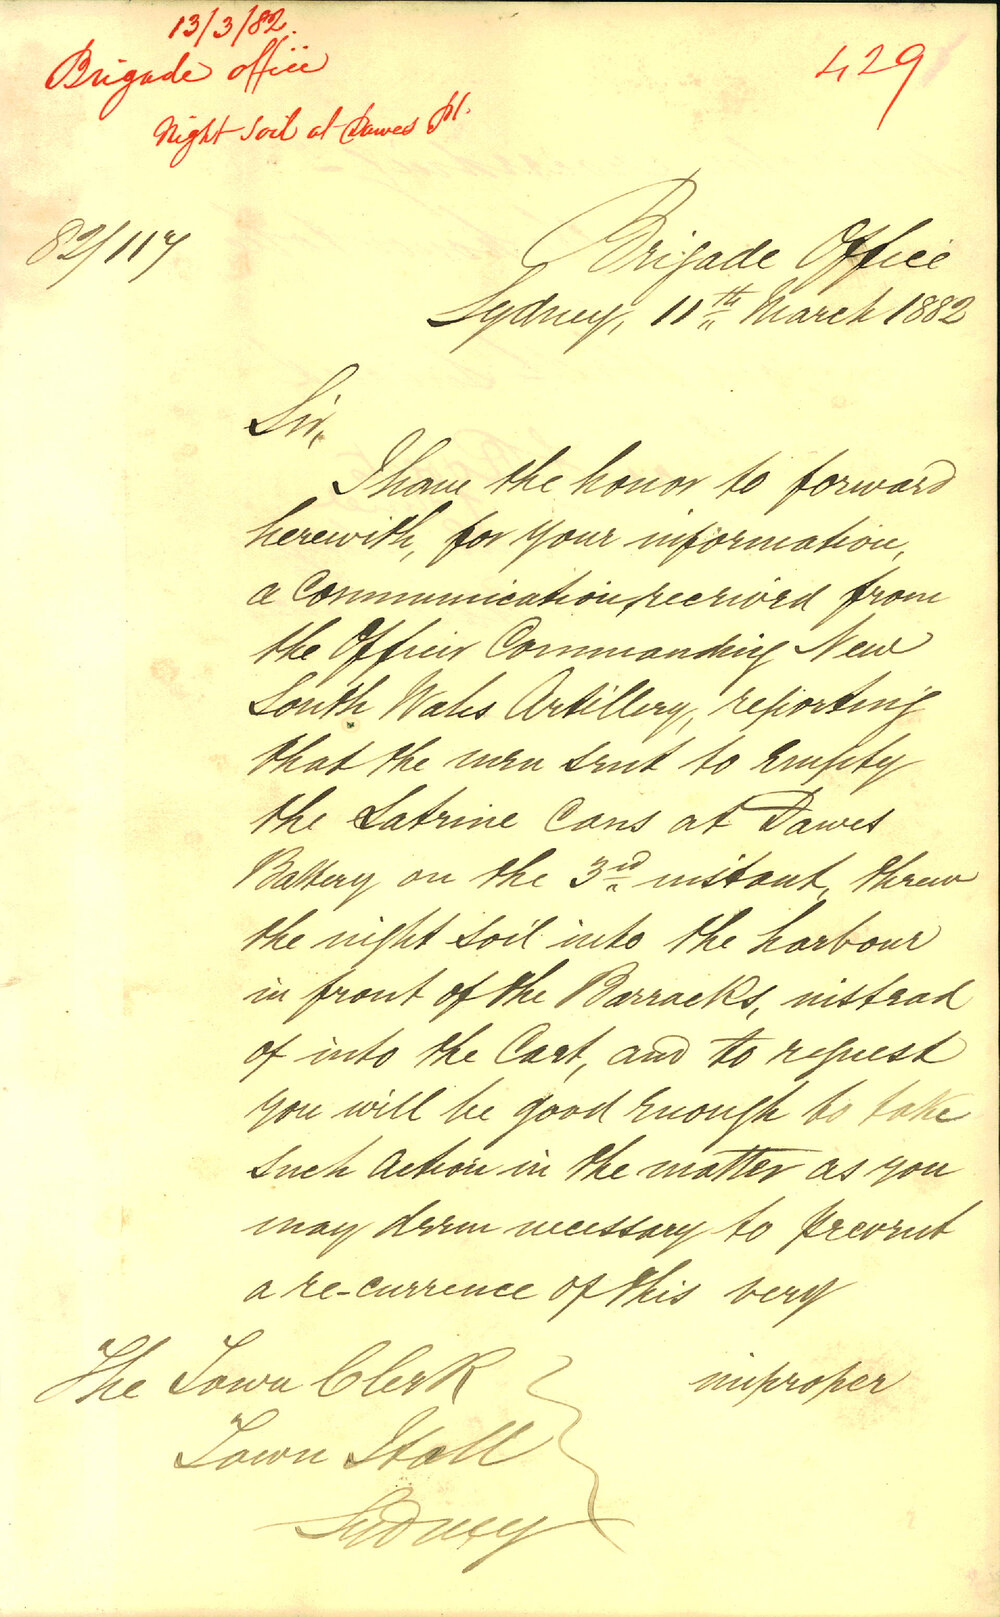 13/3/82.
Brigade office
429
Night Soil at Dawes Pt.
82/117
Brigade Office
Sydney, 11th March 1882
Sir,
I have the honor to forward
herewith, for your information,
a Communication, received from
the Officer Commanding New
South Wales Artillery, reporting
that the men sent to empty
the Latrine Cans at Dawes
Battery on the 3rd instant, threw
the night soil into the harbour
in front of the Barracks, instead
of into the Cart, and to request
you will be good enough to take
such action in the matter as you
may deem necessary to prevent
a re-currence of this very
improper
The Town Clerk
Town Hall
Sydney